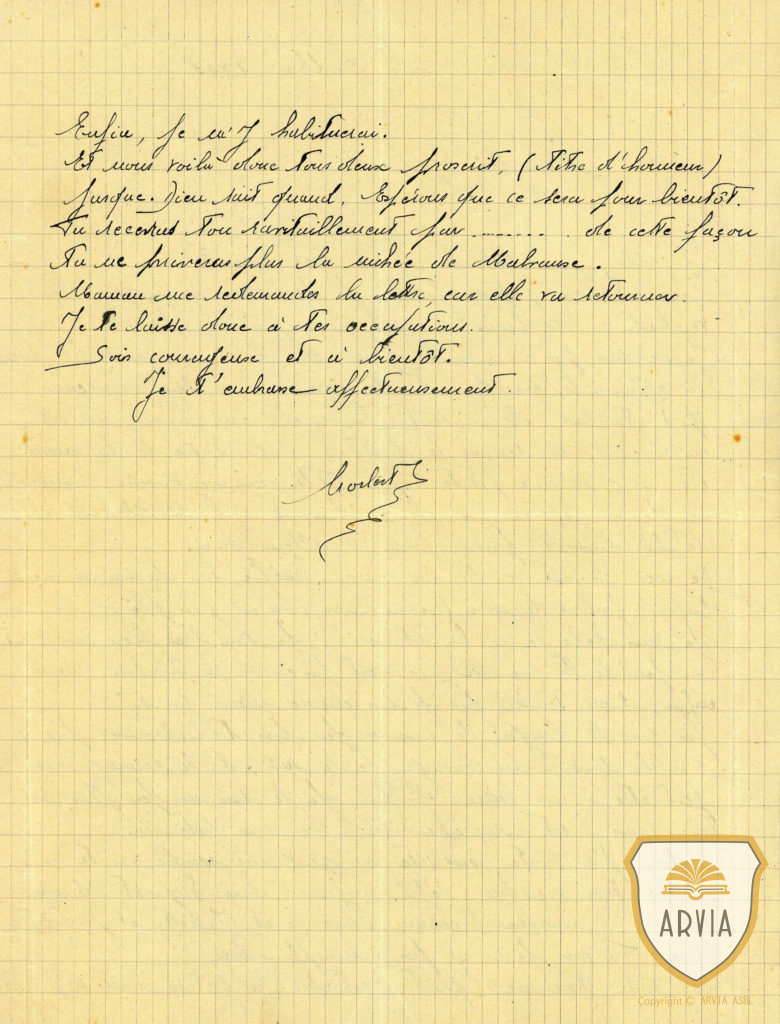 Enfin, je m'y habituerai.
Et nous voilà donc tous deux proscrit, (titre d'honneur)
jusque. Dieu sait quand. Espérons que ce sera pour bientôt.
Tu recevras ton ravitaillement par ......... de cette façon
tu ne priveras plus la nichée de
Maman me la lettre, car elle va retourner.
Je te laisse donc à tes occupations.
Sois courageuse et à bientôt.
Je t'embrasse affectueusement.
ARVIA
Copyright © ARVIA ASBL